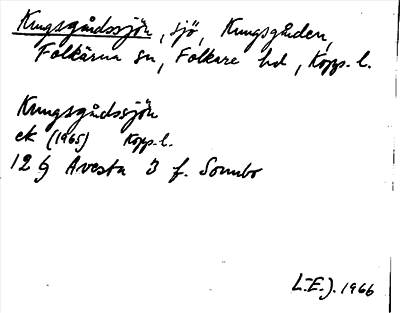 Kungsgårdssjön, sjö, Kungsgården,
Folkärna sn, Folkare hd, Kopp. l.
Kungsgårdssjön
ek (1965) Kopp. l.
12 G Avesta 3 f. Sonnbo
L.E.J. 1966